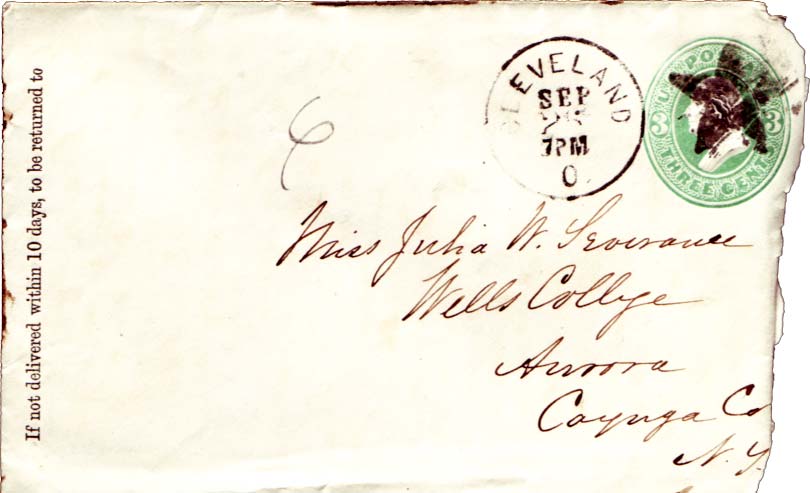 If not delivered within 10 days, to be returned to
6
CLEVELAND
SEP
7PM
O.
U.S. PO
3 3
THREE CENTS
Miss Julia W. Severance
Wells College
Aurora
Cayuga Co
N.Y.